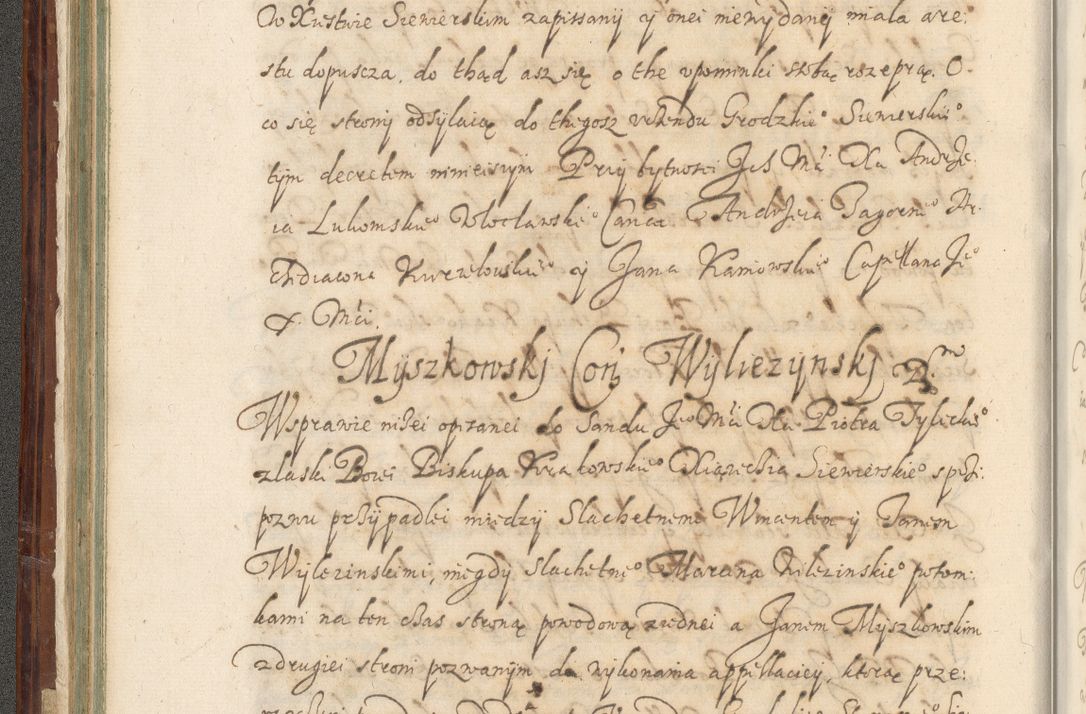 W Xustwie Siewierskim zapissany y onei niewydanej miala are:
stu dopuscza, do thąd asz się o the vpominki sobą rozeprą. O
co się strony odsylaią do thegosz vrzendu Grodzkie° Siewierskie°
tym decretem ninieiszym Przy bytnosci Je S Mci Xa Andrze
ia Lukomskie° Wloclawskie° Canca Andrzeia Zagorne° Ar:
chidiacona Kurzelowskie° y Jana Kamowskie° Capellana Je°
X. Mci.
Myszkowskj Con Wyliezynskj
W sprawie nizei opisanei do Sandu Je° Mci Xa Piotra Tylickie°
z laski Bozei Biskupa Krakowskie° Xiązechia Siewierskie° sp
pozwu przypadlei miedzy Slachetnemi Wincentem y Janem
Wylezinskimi, niegdy Slachetne° Marcina Wilezinskie° potom:
kami na ten czas stroną powodową z iednei a Janem Myszkowskim
z drugiei stroni pozwanym do wykonania appellaciey, którą prze: